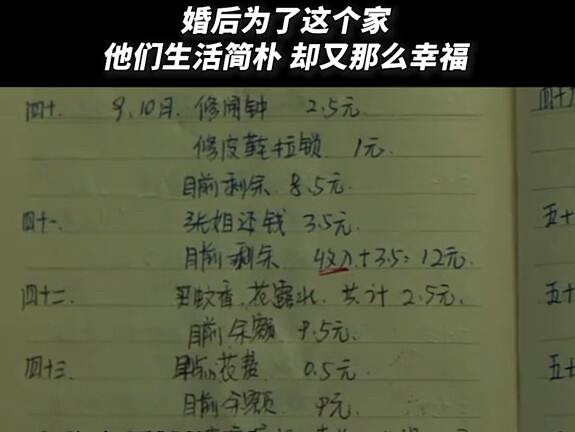 婚后为了这个家
他们生活简朴 却又那么幸福
四十. 9、10月. 修闹钟 2.5元
修皮鞋拉锁. 1元.
目前剩余. 8.5元.
四十一. 张姐还钱 3.5元.
目前剩余. 收入+3.5=12元.
四十二. 买蚊香、花露水. 共计 2.5元.
目前余额 9.5元.
四十三. 早点花费. 0.5元.
目前余额. 9元.
四十
五十
五十
五十